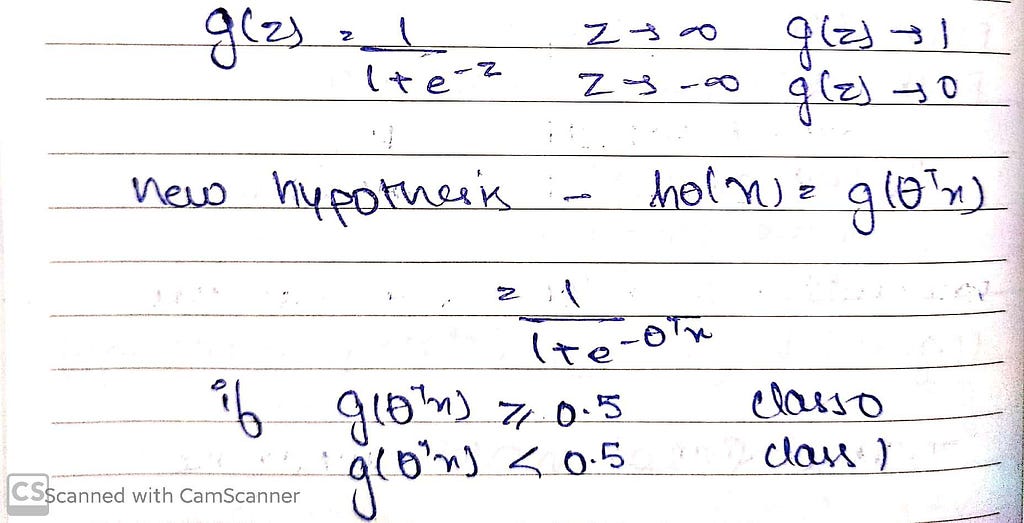 g(z) = 1 / 1+e^-z z → ∞ g(z) → 1
z → -∞ g(z) → 0
new hypothesis - hθ(x) = g(θᵀx)
= 1 / 1+e^-θᵀx
if g(θᵀx) ≥ 0.5 class 0
g(θᵀx) < 0.5 class 1
CS Scanned with CamScanner